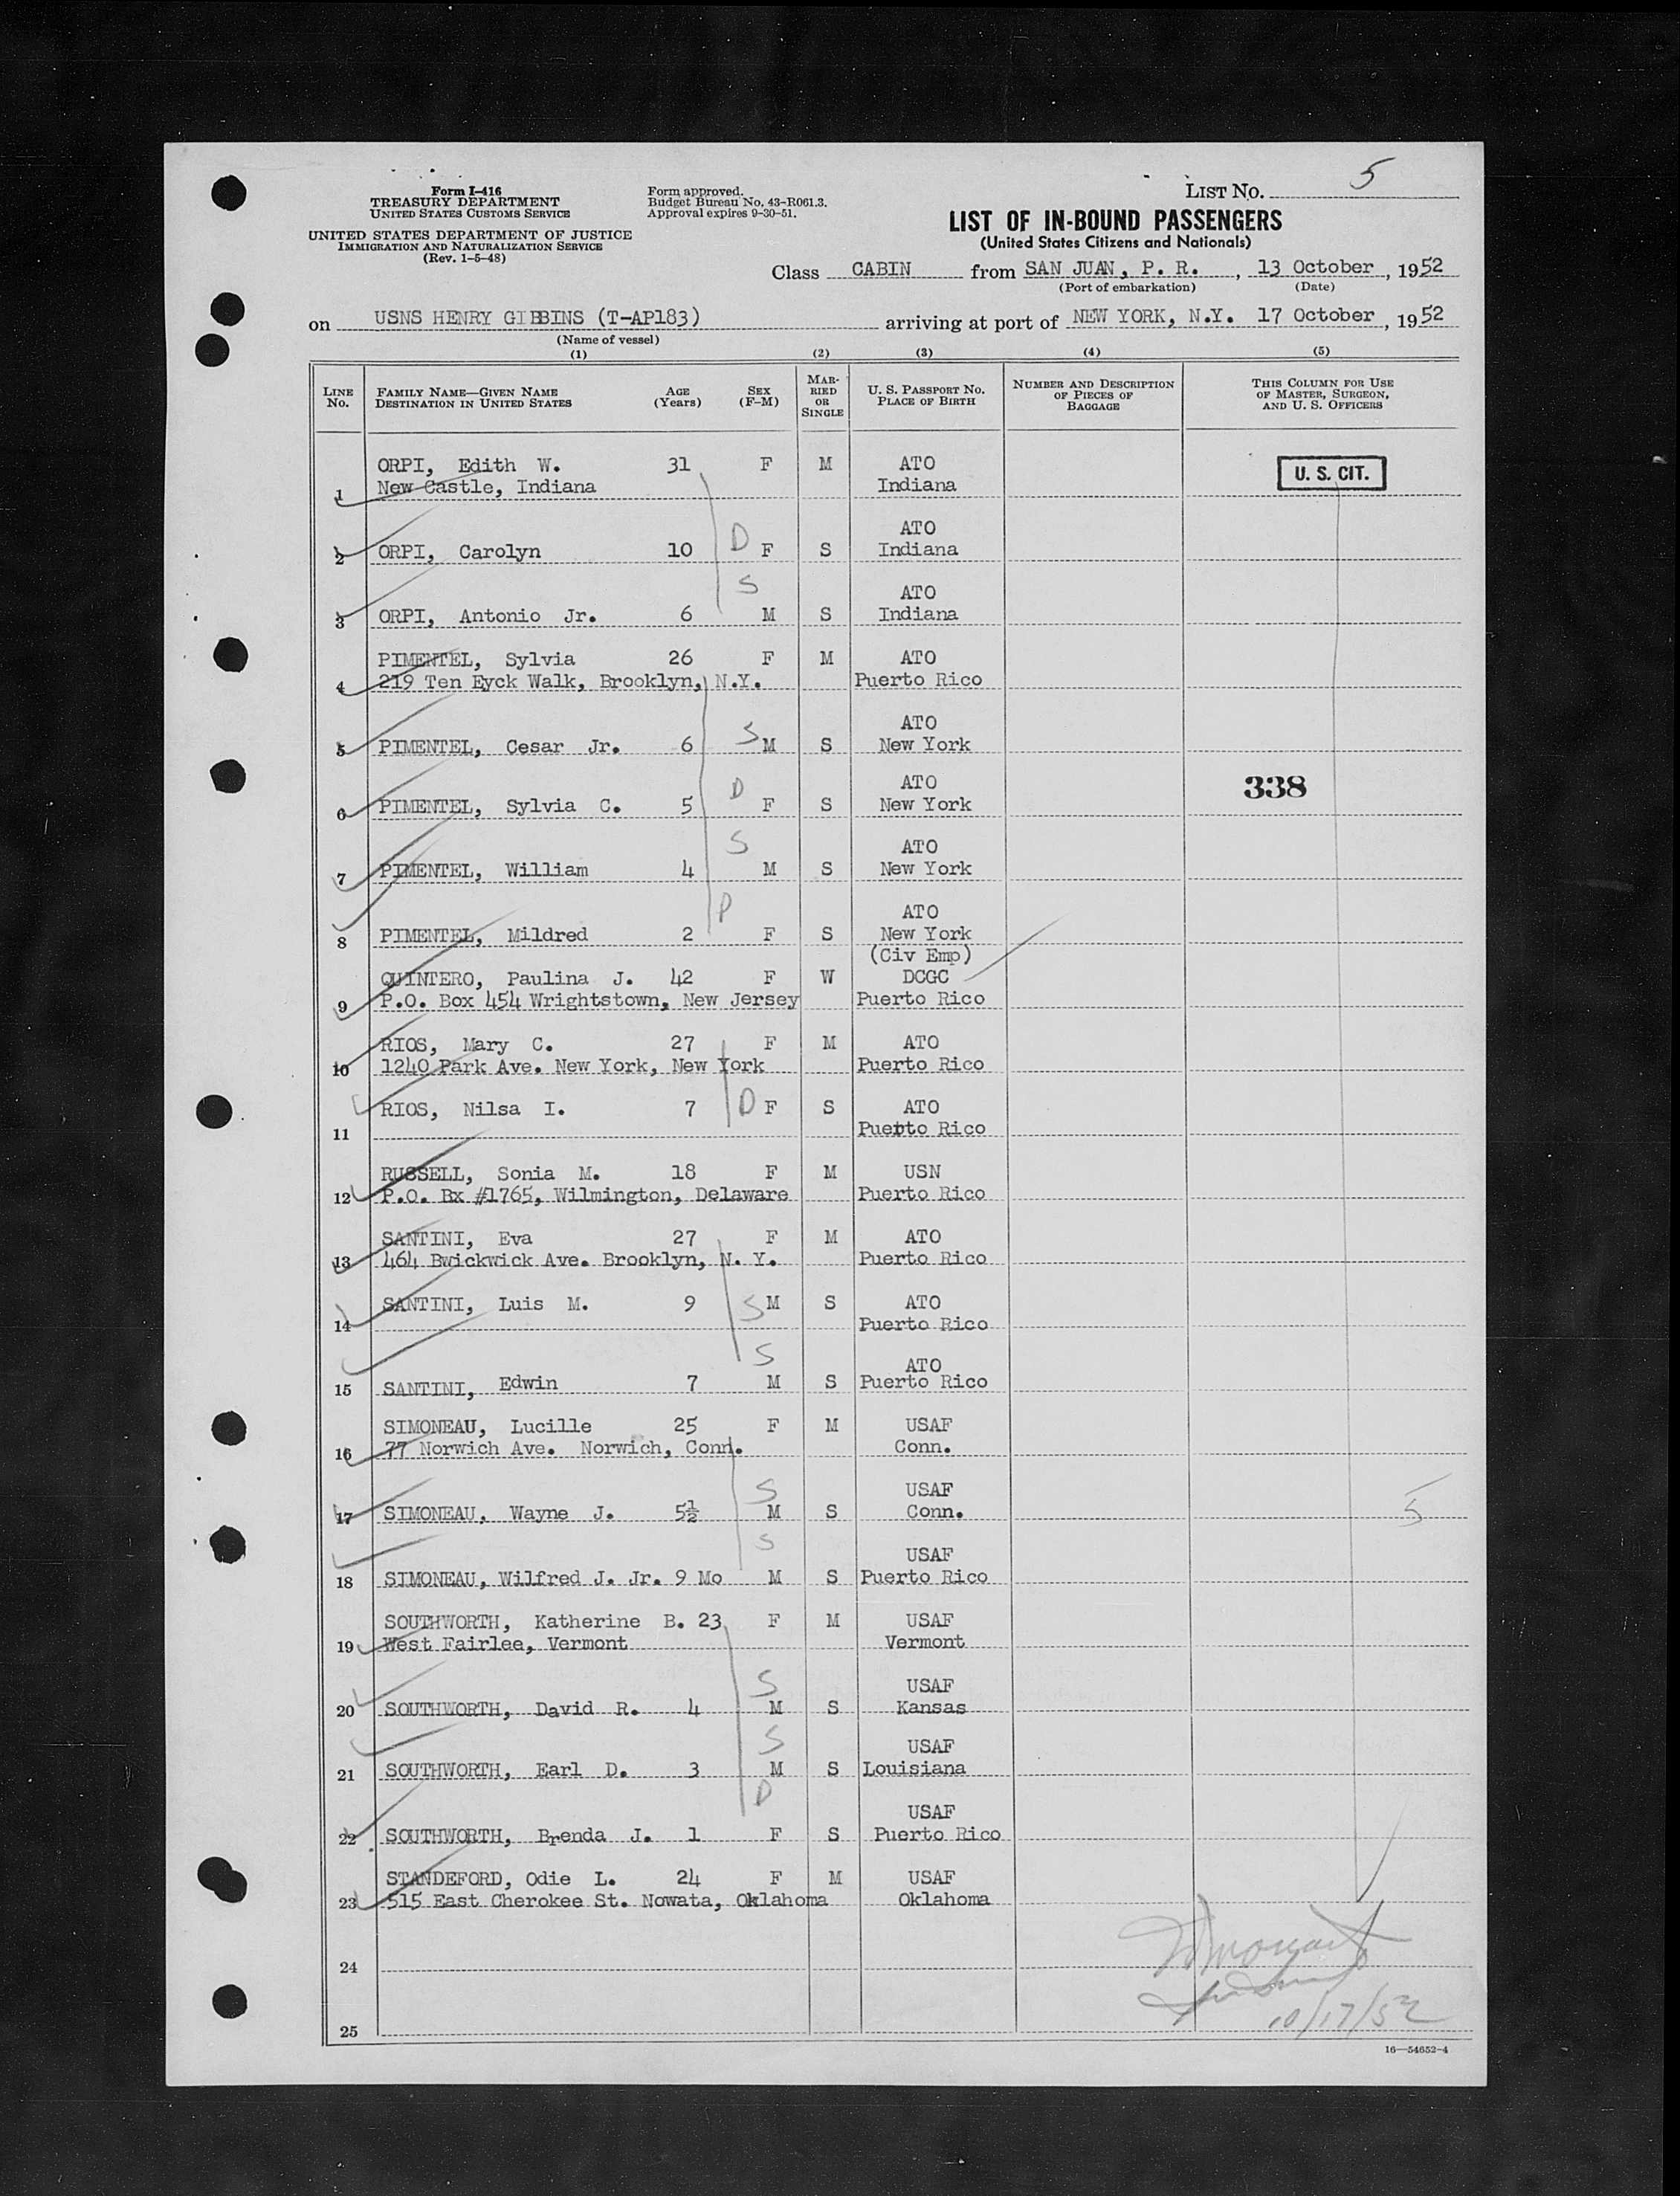 Form I-416
TREASURY DEPARTMENT
UNITED STATES CUSTOMS SERVICE
UNITED STATES DEPARTMENT OF JUSTICE
IMMIGRATION AND NATURALIZATION SERVICE
(Rev. 1-5-48)
Form approved.
Budget Bureau No. 43-R061.3.
Approval expires 9-30-51.
LIST NO. 5
LIST OF IN-BOUND PASSENGERS
(United States Citizens and Nationals)
Class CABIN from SAN JUAN, P. R., 13 October, 1952
(Port of embarkation) (Date)
on USNS HENRY GIBBINS (T-AP183) arriving at port of NEW YORK, N.Y. 17 October, 1952
(Name of vessel)
(1) (2) (3) (4) (5)
LINE No. FAMILY NAME—GIVEN NAME DESTINATION IN UNITED STATES AGE (Years) SEX (F-M) MARRIED OR SINGLE U. S. PASSPORT NO. PLACE OF BIRTH NUMBER AND DESCRIPTION OF PIECES OF BAGGAGE THIS COLUMN FOR USE OF MASTER, SURGEON, AND U. S. OFFICERS
ORPI, Edith W. 31 F M ATO U. S. CIT.
1 New Castle, Indiana Indiana
D ATO
2 ORPI, Carolyn 10 F S Indiana
S ATO
3 ORPI, Antonio Jr. 6 M S Indiana
PIMENTEL, Sylvia 26 F M ATO
4 219 Ten Eyck Walk, Brooklyn, N.Y. Puerto Rico
S ATO
5 PIMENTEL, Cesar Jr. 6 M S New York
D ATO 338
6 PIMENTEL, Sylvia C. 5 F S New York
S ATO
7 PIMENTEL, William 4 M S New York
D ATO
8 PIMENTEL, Mildred 2 F S New York
(Civ Emp)
QUINTERO, Paulina J. 42 F W DCGC
9 P.O. Box 454 Wrightstown, New Jersey Puerto Rico
RIOS, Mary C. 27 F M ATO
10 1240 Park Ave. New York, New York Puerto Rico
RIOS, Nilsa I. 7 D F S ATO
11 Puerto Rico
RUSSELL, Sonia M. 18 F M USN
12 P.O. Bx #1765, Wilmington, Delaware Puerto Rico
SANTINI, Eva 27 F M ATO
13 464 Bwickwick Ave. Brooklyn, N. Y. Puerto Rico
SANTINI, Luis M. 9 S M S ATO
14 Puerto Rico
S ATO
15 SANTINI, Edwin 7 M S Puerto Rico
SIMONEAU, Lucille 25 F M USAF
16 77 Norwich Ave. Norwich, Conn. Conn.
S USAF
17 SIMONEAU, Wayne J. 5½ M S Conn. 5
S USAF
18 SIMONEAU, Wilfred J. Jr. 9 Mo M S Puerto Rico
SOUTHWORTH, Katherine B. 23 F M USAF
19 West Fairlee, Vermont Vermont
S USAF
20 SOUTHWORTH, David R. 4 M S Kansas
S USAF
21 SOUTHWORTH, Earl D. 3 M S Louisiana
D USAF
22 SOUTHWORTH, Brenda J. 1 F S Puerto Rico
STANDEFORD, Odie L. 24 F M USAF
23 515 East Cherokee St. Nowata, Oklahoma Oklahoma
24
25
10/17/52
16—54652-4